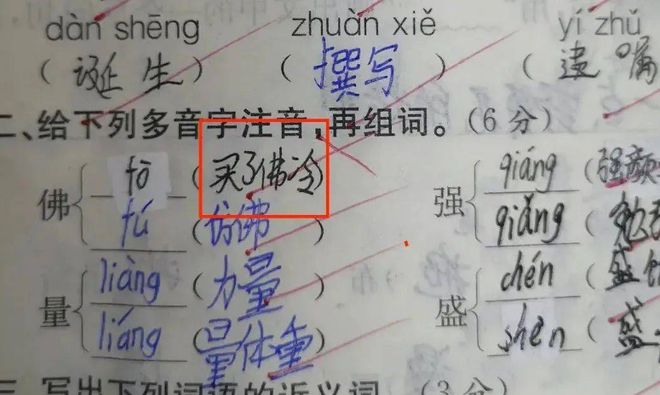 dàn shēng zhuàn xiě yí zhǔ
(诞生) (撰写) (遗嘱
二、给下列多音字注音,再组词。(6分)
佛 fó (买了佛冷)
fú (仿佛)
强 qiáng (强颜
qiǎng (勉
量 liàng (力量)
liáng (量体重)
盛 chén (盛饭
shèn (盛
三、写出下列词语的近义词。(3分)